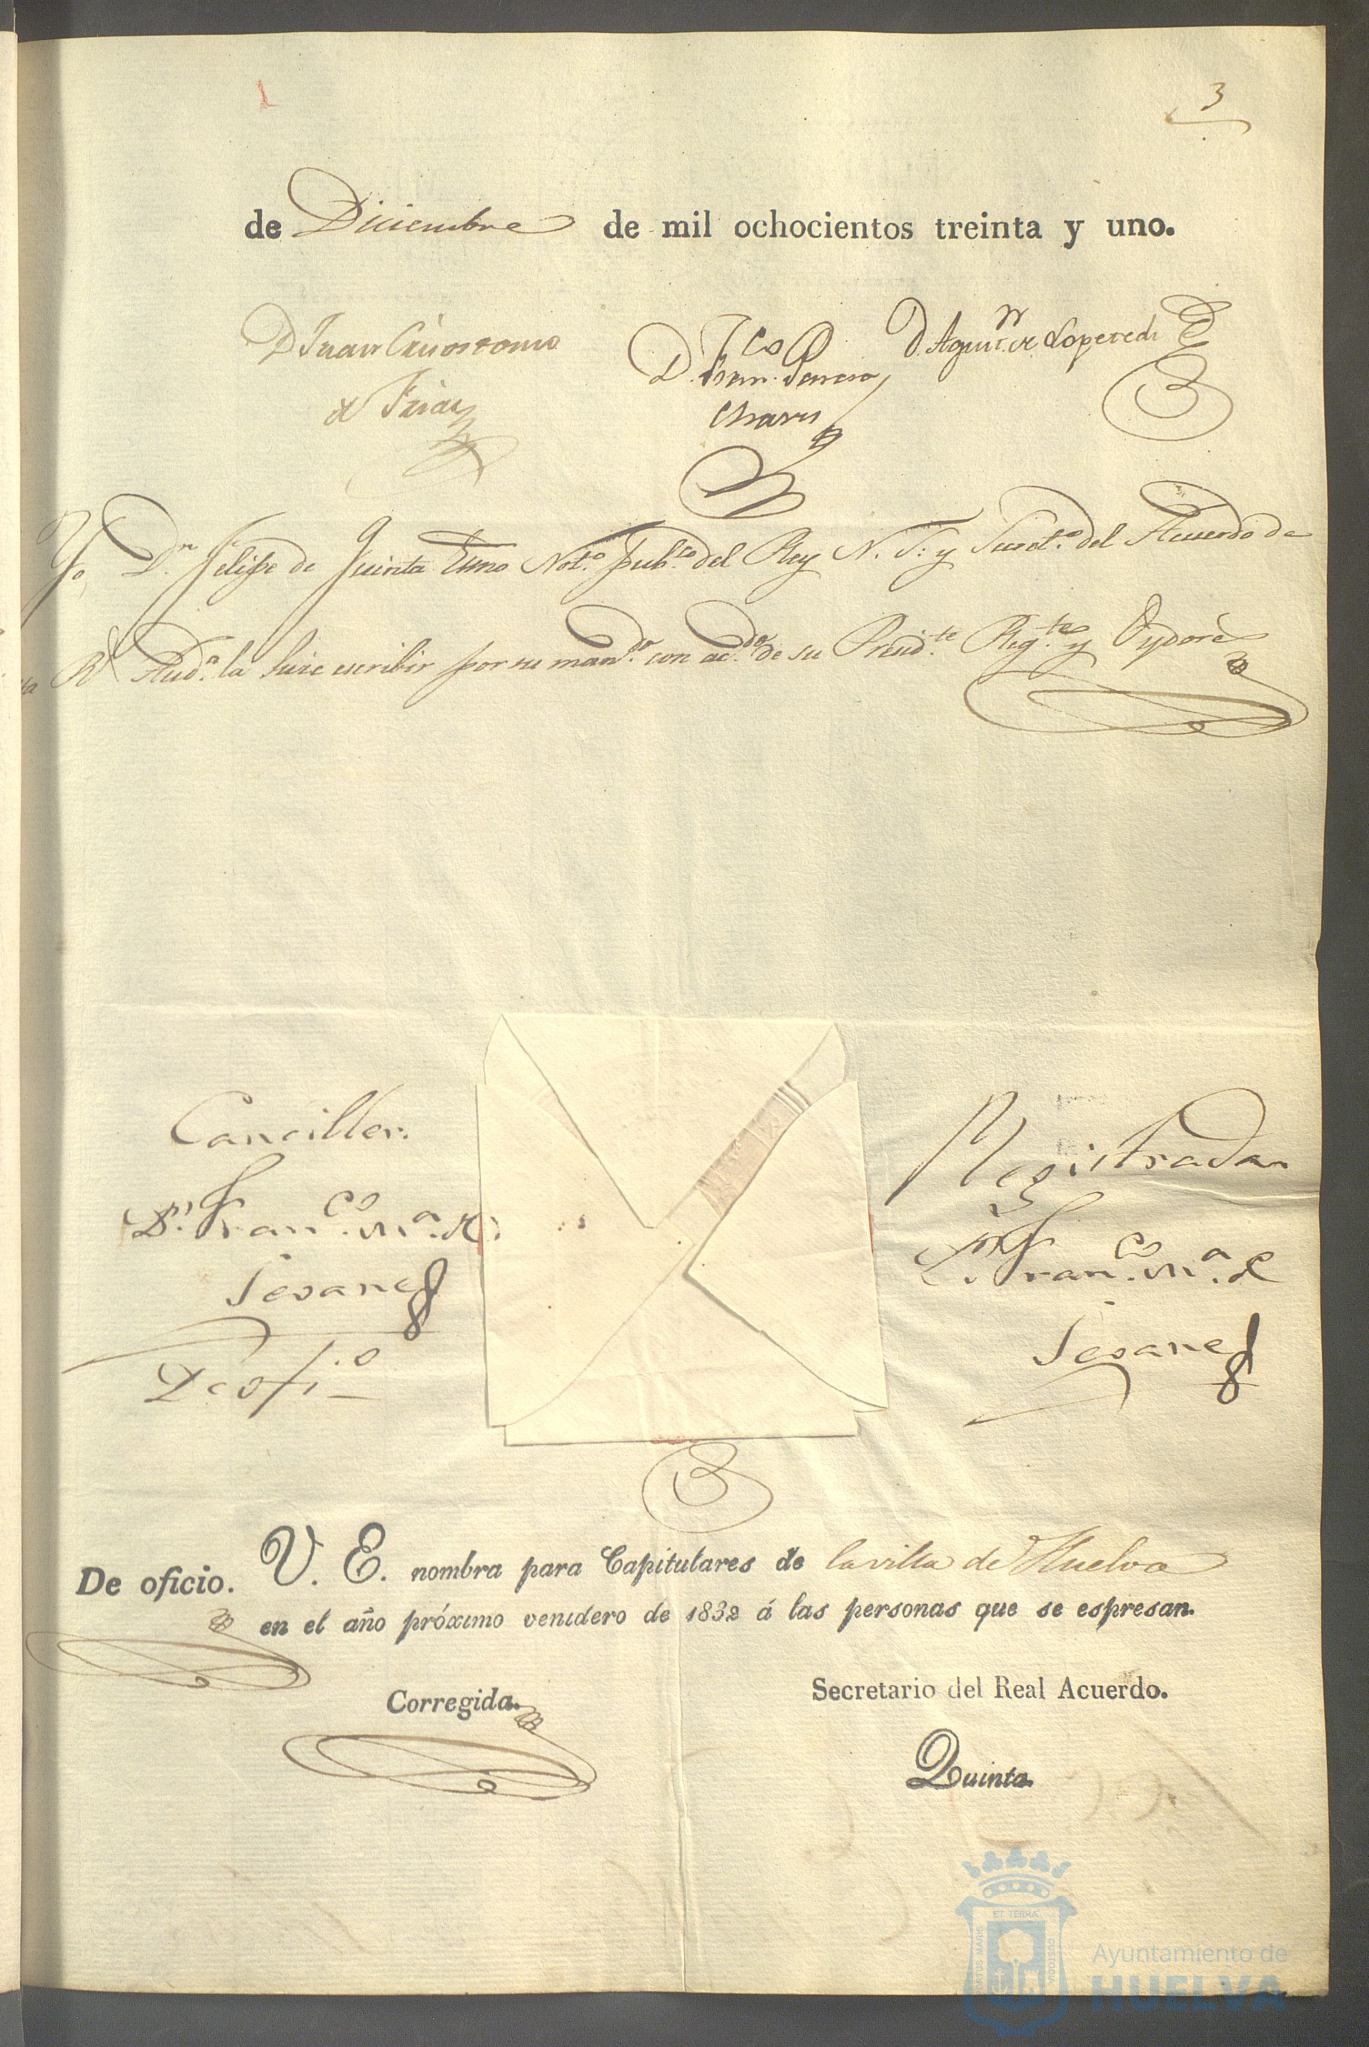 3
de Diciembre de mil ochocientos treinta y uno.
D Juan Crisostomo
D. Fran.co Pereira
D. Agust.n de Loperedi
de Frias
Chaves
Yo, D.n Felipe de Quinta Esno Not.o pub.co del Rey N. S. y Secret.o del Acuerdo de
R.l Aud.a la hice escribir por su man.do con ac.do de su Presid.te Reg.te y Oydores
Canciller.
D.n Fran.co M.a de
Seoane
De ofi.o
Registrada
D.n Fran.co M.a de
Seoane
De oficio. V. E. nombra para Capitulares de la villa de Huelva
en el año próximo venidero de 1832 á las personas que se espresan.
Corregida.
Secretario del Real Acuerdo.
Quinta.
Ayuntamiento de
HUELVA